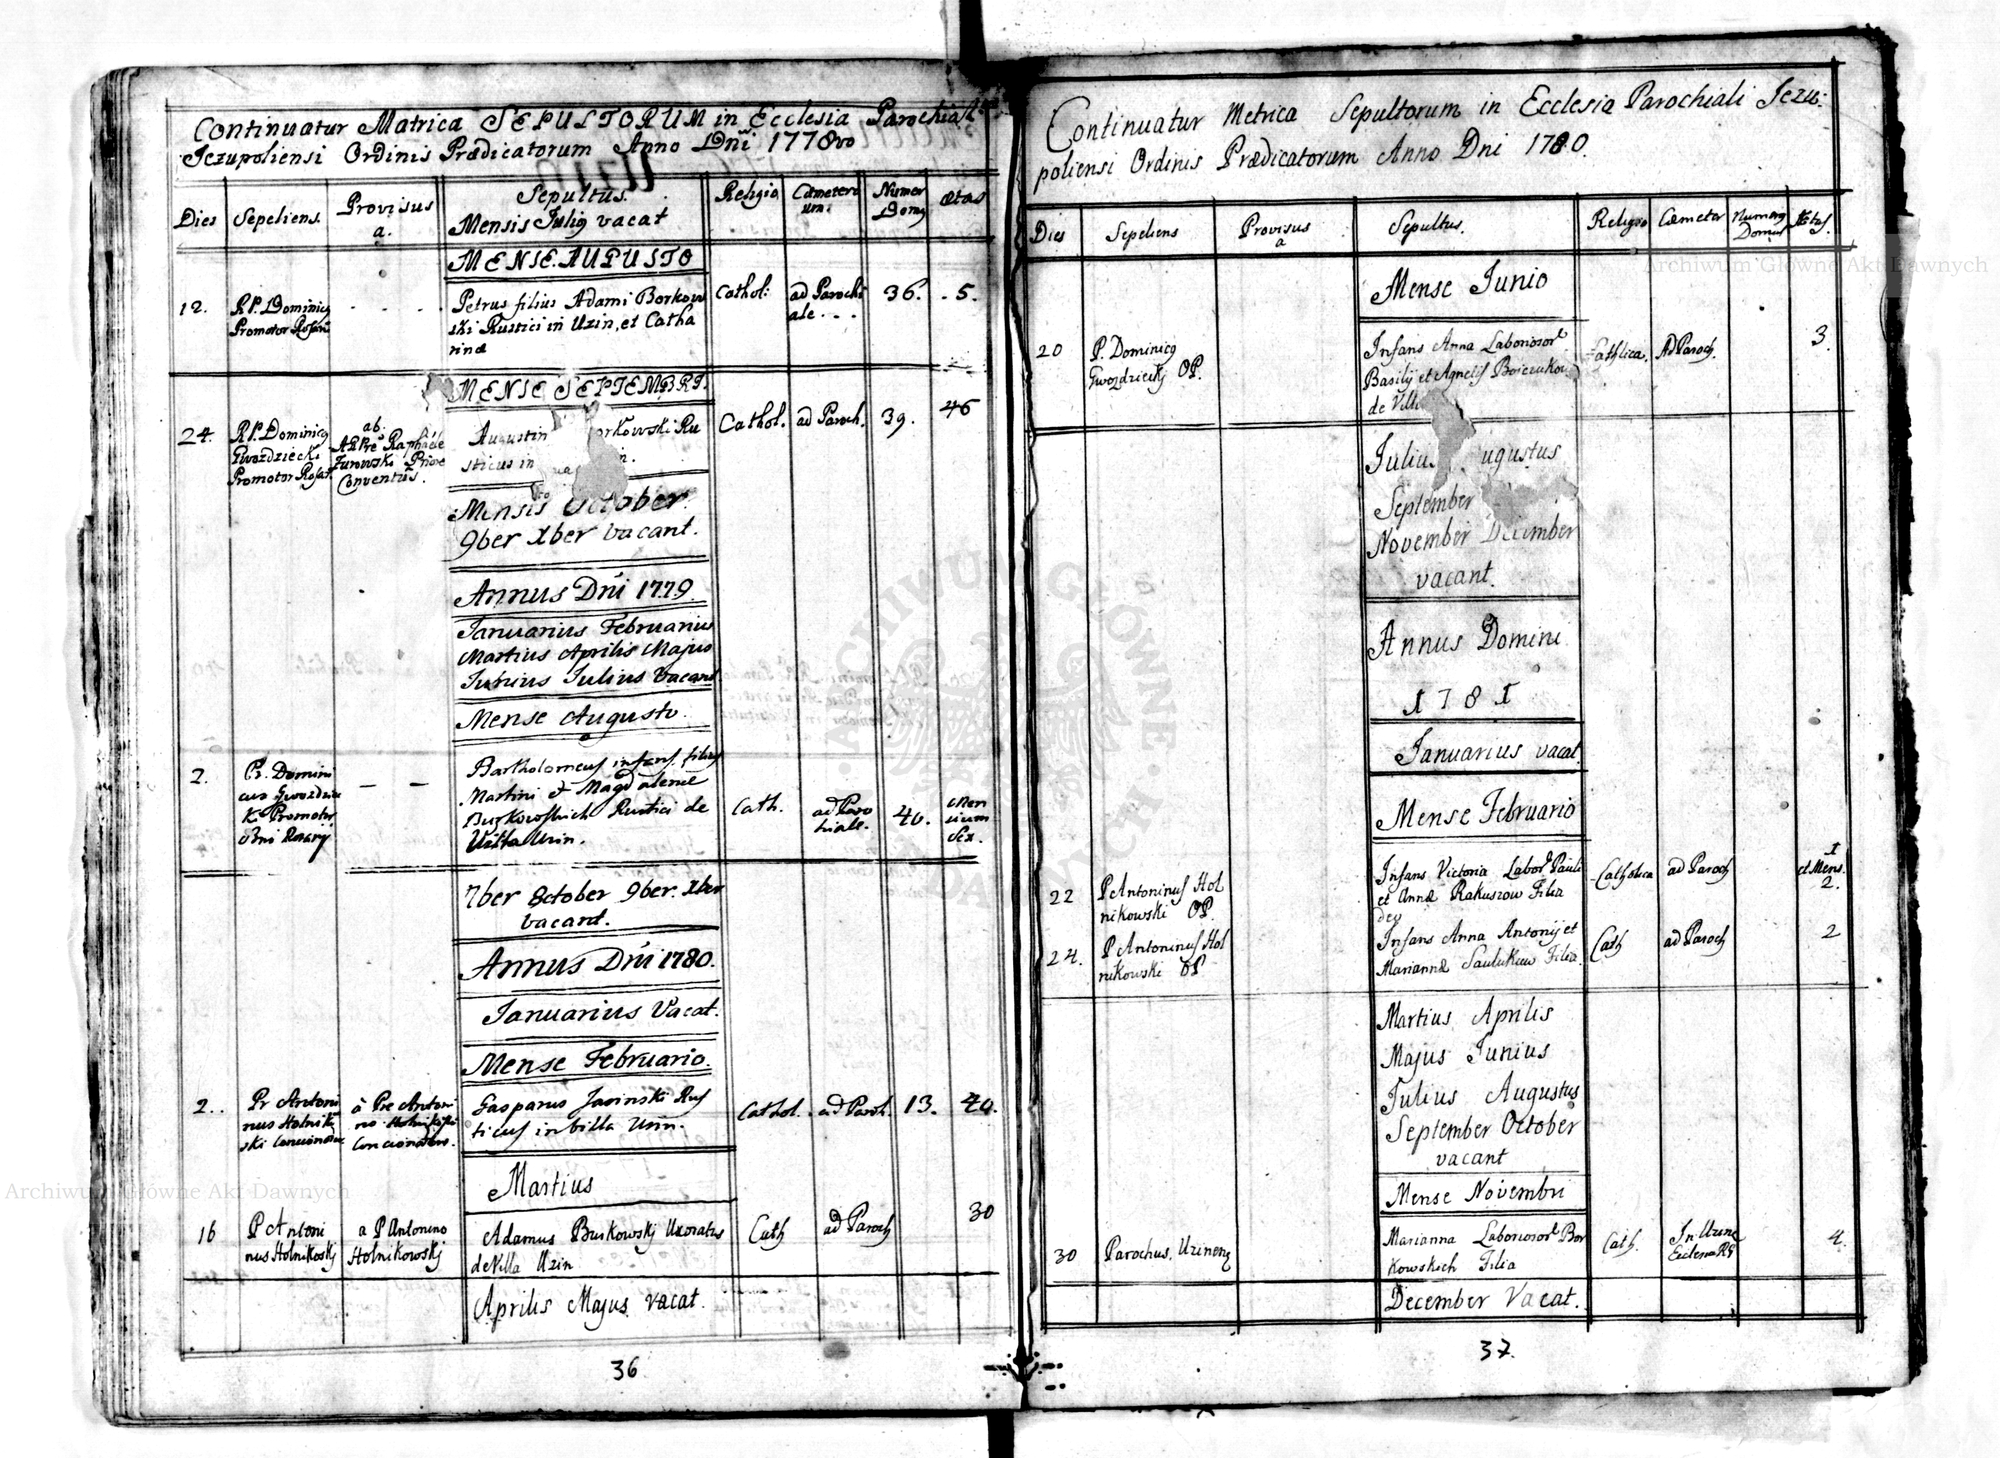 Continuatur Matrica SEPULTORUM in Ecclesia Parochiali
Jezupoliensi Ordinis Prædicatorum Anno Dni 1778vo
Dies
Sepeliens.
Provisus
a.
Sepultus.
Mensis Julig vacat
Religio
Cæmeteri
um.
Numer
Domg
ætas
MENSE AUPUSTO
12.
RP. Dominicg
Promotor Rosarii
Petrus filius Adami Borkow
ski Rustici in Uzin, et Catha
rinæ
Cathol:
ad Parochi
ale
36.
5.
MENSE SEPTEMBRI.
24.
RP. Dominicg
Gwoździecki
Promotor Rosar.
ab.
Raphaele
Zurowski Priore
Conventus.
Augustin orkowski Ru
sticus in
Cathol.
ad Paroch.
39.
46
Mensis October
9ber Xber vacant.
Annus Dni 1779.
Januarius Februarius
Martius Aprilis Majus
Junius Julius vacant
Mense Augusto.
2.
Pr. Domini
cus Gwozdzic
ki Promotor
Rosary
Bartholomeus infans filius
Martini et Magdalenæ
Burkowskich Rustici de
Villa Uzin.
Cath.
ad Paro
chiale.
40.
Men
sium
Sex.
7ber October 9ber. Xber
vacant.
Annus Dni 1780.
Januarius Vacat.
Mense Februario.
2.
Pr Antoni
nus Holnikow
ski Concionator
à Pre Antoni
no Holnikowski
Concionatore.
Gasparus Jasinski Rus
ticus in villa Uzin.
Cathol.
ad Paroch.
13.
40.
Martius
16
P Antoni
nus Holnikowskj
a P Antonino
Holnikowskj
Adamus Burkowskj Uxoratus
de Villa Uzin
Cath
ad Paroch
30
Aprilis Majus vacat.
36
Continuatur Metrica Sepultorum in Ecclesia Parochiali Jezu:
poliensi Ordinis Prædicatorum Anno Dni 1780.
Dies
Sepeliens
Provisus
a
Sepultus.
Religio
Cæmeter
Numerg
Domus
Ætas
Mense Junio
20
P. Dominicg
Gwozdzieckj OP.
Infans Anna Laboriosor
Basilij et Agnetis Boiczukow
de Villa
Cathlica.
Ad Paroch.
3.
Julius ugustus
September
November December
vacant.
Annus Domini
1781
Januarius vacat
Mense Februario
22
P Antoninus Hol
nikowski OP.
Infans Victoria Labor Pauli
et Annæ Rakuszow Filia
Catholica
ad Paroch
1
et Mens.
2.
24.
P Antoninus Hol
nikowski OP
Infans Anna Antonij et
Mariannæ Saulukiw Filia.
Cath
ad Paroch
2
Martius Aprilis
Majus Junius
Julius Augustus
September October
vacant
Mense Novembri
30
Parochus. Uzineng
Marianna Laboriosor Bor
kowskich Filia
Cath.
In Uzine
Ecclesia RG
4.
December Vacat.
37.
Archiwum Główne Akt Dawnych
Archiwum Główne Akt Dawnych
ARCHIWUM GŁÓWNE AKT DAWNYCH